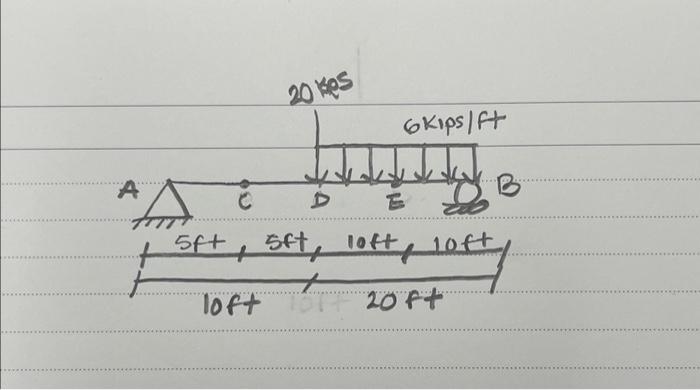 20 kips
6 kips/ft
A C D E B
5ft 5ft 10ft 10ft
10ft 20ft